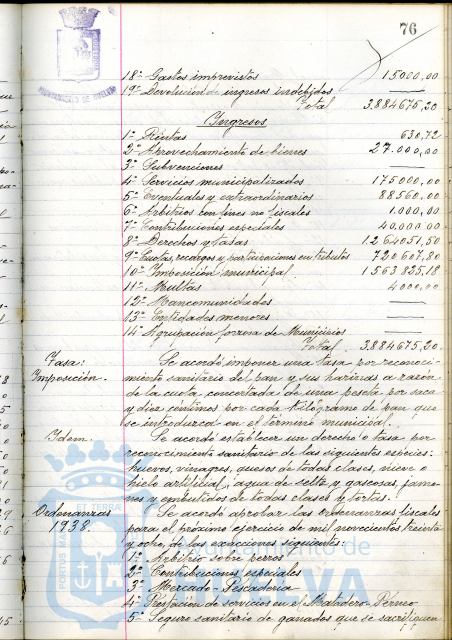 76
18º Gastos imprevistos 15000,00
19º Devolución de ingresos indebidos
Total 3.884675,20
Ingresos
1º Rentas 630,72
2º Aprovechamiento de bienes 27.000,00
3º Subvenciones
4º Servicios municipalizados 175000,00
5º Eventuales y extraordinarios 88560,00
6º Arbitrios con fines no fiscales 1.000,00
7º Contribuciones especiales 40.000,00
8º Derechos y tasas 1.264051,50
9º Cuotas, recargos y participaciones en tributos 720607,80
10º Imposición municipal 1563825,18
11º Multas 4000,00
12º Mancomunidades
13º Entidades menores
14º Agrupación forzosa de Municipios
Total 3.884675,20.
Tasa: Se acordó imponer una tasa por reconoci-
Imposición. miento sanitario del pan y sus harinas a razón
de la cuota concertada de una peseta por saca
y diez céntimos por cada kilógramo de pan que
se introduzca en el término municipal.
Idem. Se acordó establecer un derecho o tasa por
reconocimiento sanitario de las siguientes especies:
huevos, vinagres, quesos de todas clases, nieve o
hielo artificial, agua de selts y gaseosas, jamo-
nes y embutidos de todas clases y tortas.
Ordenanzas Se acordó aprobar las ordenanzas fiscales
1938. para el próximo ejercicio de mil novecientos treinta
y ocho, de las exacciones siguientes:
1º Arbitrio sobre perros
2º Contribuciones especiales
3º Mercado-Pescadería
4º Prestación de servicios en el Matadero Pérneo
5º Seguro sanitario de ganados que se sacrifiquen